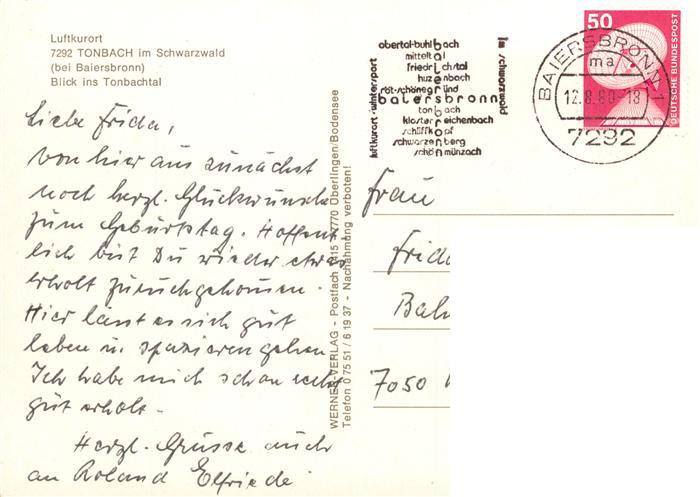 Luftkurort
7292 TONBACH im Schwarzwald
(bei Baiersbronn)
Blick ins Tonbachtal
Liebe Frida,
von hier aus zunächst
noch herzl. Glückwunsch
zum Geburtstag. Hoffent
lich bist Du wieder etwas
erholt zurückgekommen.
Hier lässt es sich gut
leben u. spazieren gehen
Ich habe mich schon recht
gut erholt.
Herzl. Grüsse auch
an Roland Elfriede
WERNER VERLAG - Postfach 1415 - 7770 Überlingen/Bodensee
Telefon 0 75 51 / 6 19 37 - Nachahmung verboten!
luftkurort · wintersport
obertal-buhlbach
mitteltal
friedrichstal
huzenbach
röt-schönegründ
baiersbronn
tonbach
klosterreichenbach
schliffkopf
schwarzenberg
schönmünzach
im schwarzwald
BAIERSBRONN 1
ma
12.8.80-18
7292
50
DEUTSCHE BUNDESPOST
Frau
Frid
Bah
7050